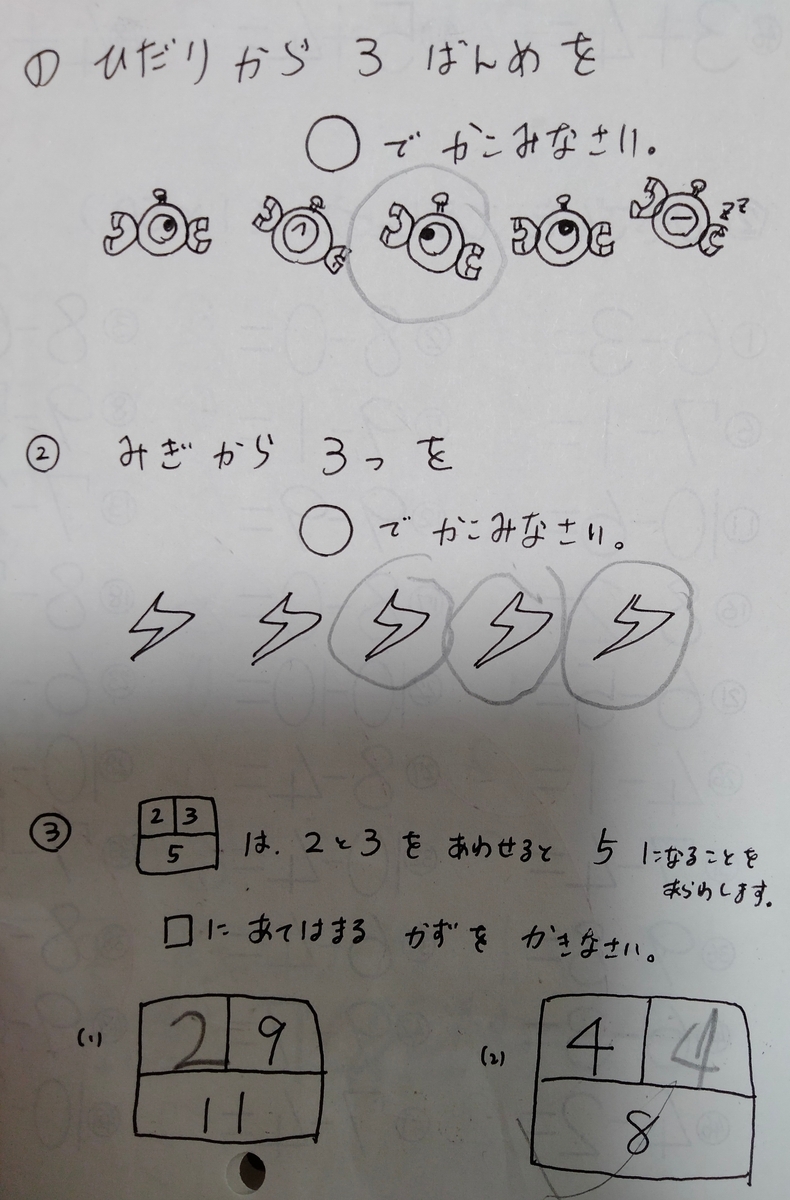 ① ひだりから 3 ばんめを
○で かこみなさい。
zz
② みぎから 3つを
○で かこみなさい。
③ 2 3 5 は、2と3を あわせると 5 になることを
あらわします。
□に あてはまる かずを かきなさい。
(1) 2 9 (2) 4 4
11 8